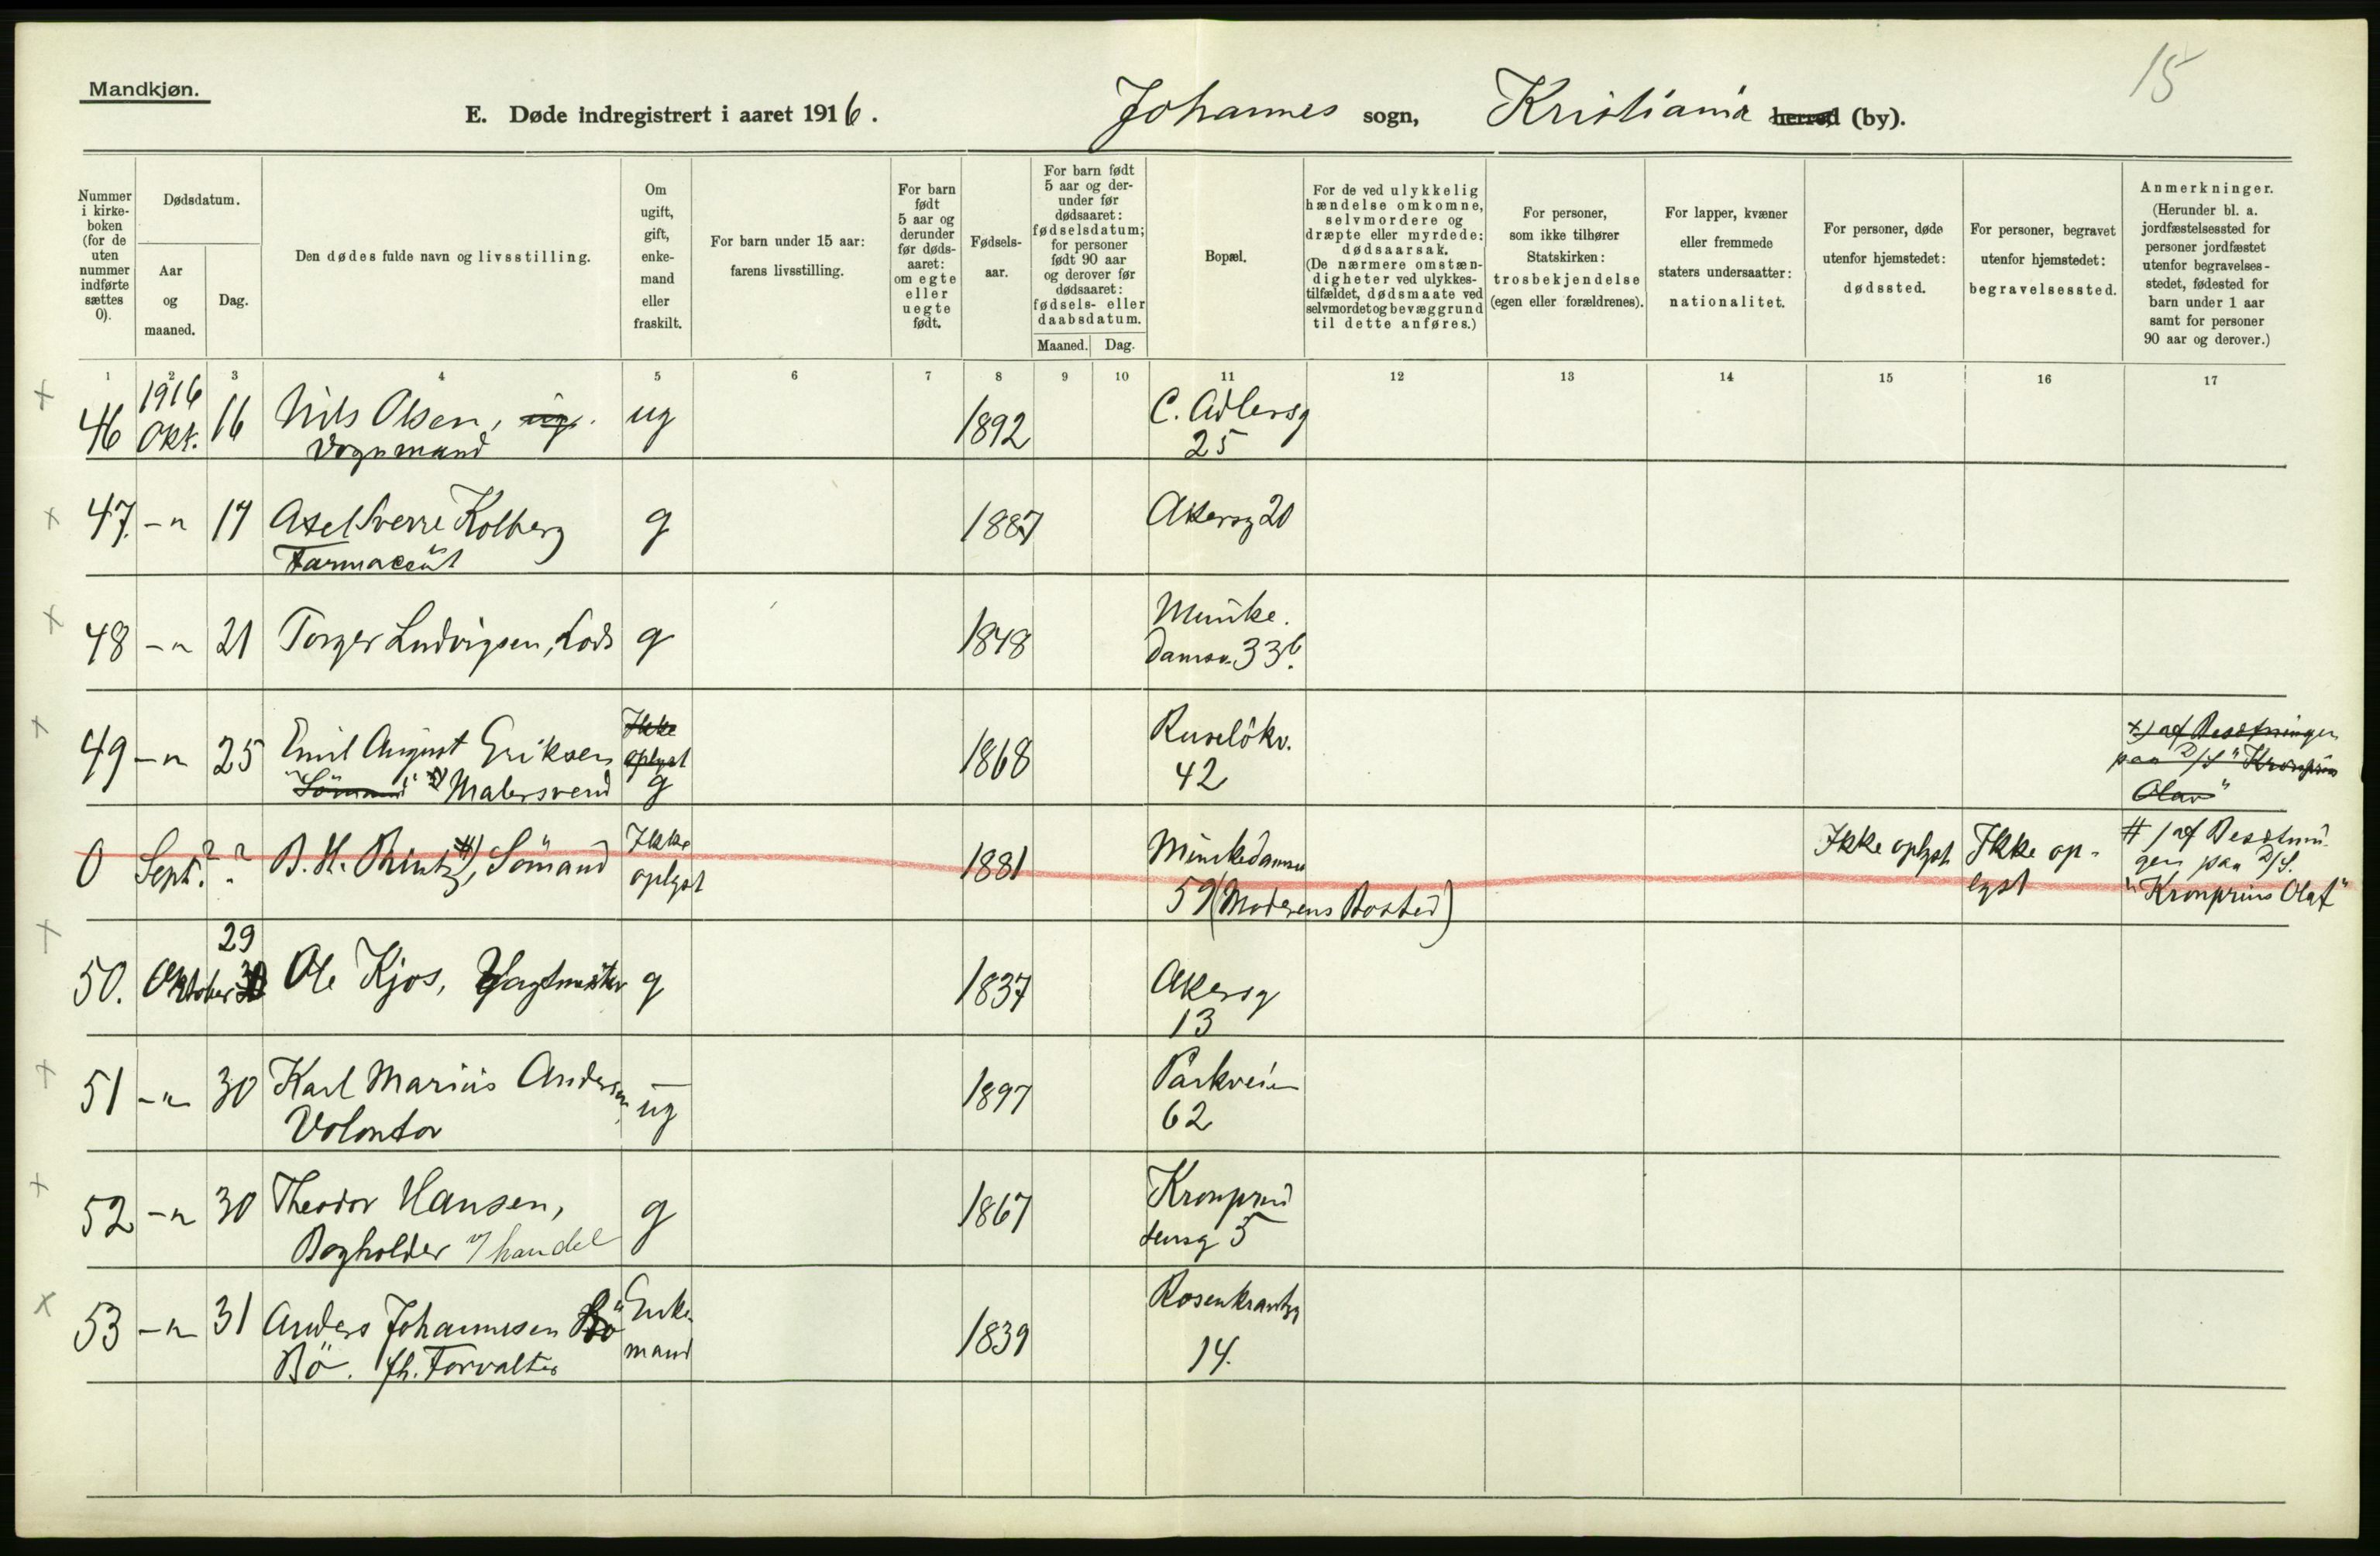 15
Mandkjøn.
E. Døde indregistrert i aaret 1916. Johannes sogn, Kristiania herred (by).
Nummer i kirke- boken (for de uten nummer indførte sættes 0).
Dødsdatum.
Aar og maaned.
Dag.
Den dødes fulde navn og livsstilling.
Om ugift, gift, enke- mand eller fraskilt.
For barn under 15 aar: farens livsstilling.
For barn født 5 aar og derunder før døds- aaret: om egte eller uegte født.
Fødsels- aar.
For barn født 5 aar og der- under før dødsaaret: fødselsdatum; for personer født 90 aar og derover før dødsaaret: fødsels- eller daabsdatum.
Maaned. Dag.
Bopæl.
For de ved ulykkelig hændelse omkomne, selvmordere og dræpte eller myrdede: dødsaarsak. (De nærmere omstæn- digheter ved ulykkes- tilfældet, dødsmaate ved selvmord et og bevæggrund til dette anføres.)
For personer, som ikke tilhører Statskirken: trosbekjendelse (egen eller forældrenes).
For lapper, kvæner eller fremmede staters undersaatter: nationalitet.
For personer, døde utenfor hjemstedet: dødssted.
For personer, begravet utenfor hjemstedet: begravelsessted.
Anmerkninger. (Herunder bl. a. jordfæstelsessted for personer jordfæstet utenfor begravelses- stedet, fødested for barn under 1 aar samt for personer 90 aar og derover.)
1 2 3 4 5 6 7 8 9 10 11 12 13 14 15 16 17
+ 46 1916 Okt. 16 Nils Olsen, ug. ug 1892 C. Adlersg
Vognmand 25
+ 47. -"- 17 Axel Sverre Kolberg g 1887 Akersg 20
Farmaceut
+ 48 -"- 21 Torger Ludvigsen, Lods g 1848 Munke.
damsv. 33b.
+ 49 -"- 25 Emil August Eriksen Ikke oplyst 1868 Ruselökv. x) af Besætningen
"Sömand" x) Malersvend g 42 paa D/S "Kronprins
Olav"
0 Sept.? ? B. H. Rintz #), Sömand Ikke 1881 Munkedamsv Ikke oplyst Ikke op- #) af Besætnin
oplyst 59 (Moderens Bosted) lyst gen paa D/S.
"Kronprins Olaf"
+ 50. Oktober 30 29 Ole Kjos, Vagtmester g 1837 Akersg
13
+ 51 -"- 30 Karl Marius Andersen, ug 1897 Parkveien
Volontør 62
+ 52 -"- 30 Theodor Hansen, g 1867 Kronprin
Bogholder v/ handel sensg 5
x 53 -"- 31 Anders Johannesen Bö Enke- 1839 Rosenkrantzg
Bö. fh. Forvalter mand 14.